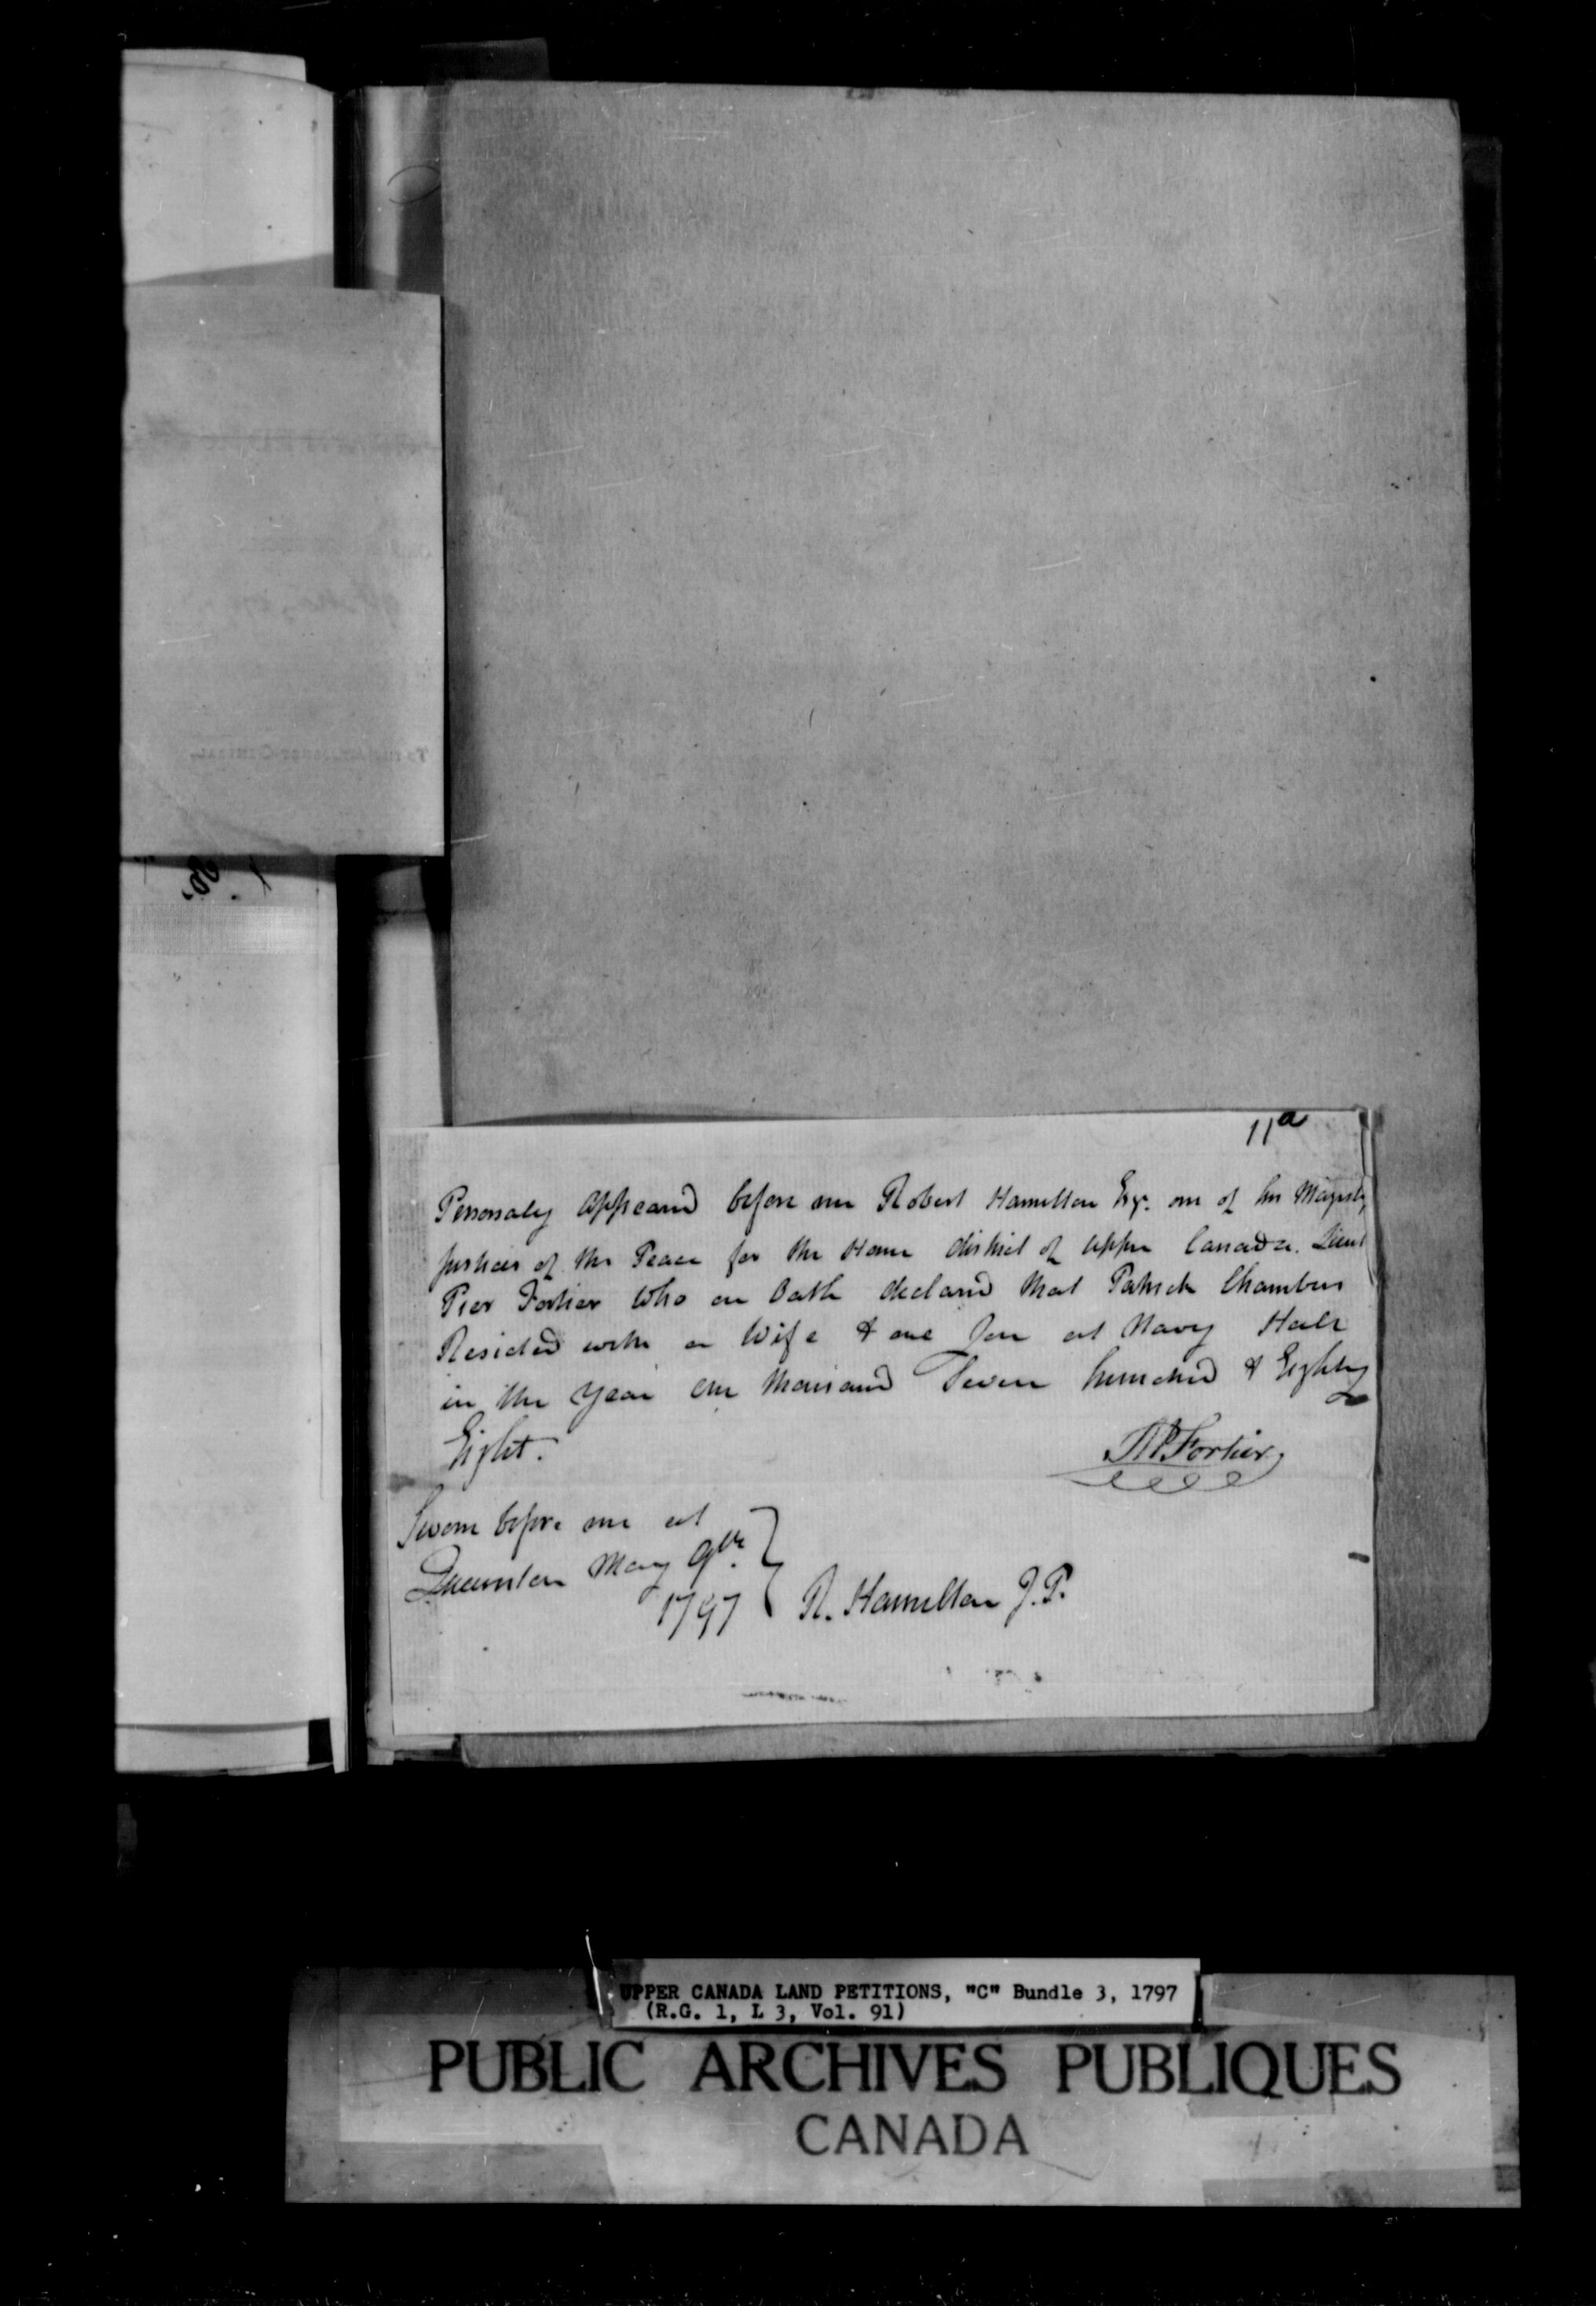 11a
Personaly Appeared before me Robert Hamilton Esqr. one of his Majesty
Justices of the Peace for the Home district of Upper Canada. Lieut
Pier Fortier Who on Oath declared that Patrick Chambers
Resided with a Wife & one Son at Navy Hall
in the Year One thousand Seven hundred & Eighty
Eight.
Fortier
Sworn before me at
Queenston May 9th.
1797
R. Hamilton J.P.
UPPER CANADA LAND PETITIONS, "C" Bundle 3, 1797
(R.G. 1, L 3, Vol. 91)
PUBLIC ARCHIVES PUBLIQUES
CANADA